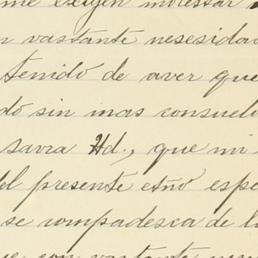 me exigen interesar
vastante nesesidad
tenido de aver que
do sin mas consuelo
savra Ud., que mi
el presente etno espe
se compadesca de l
con vastante